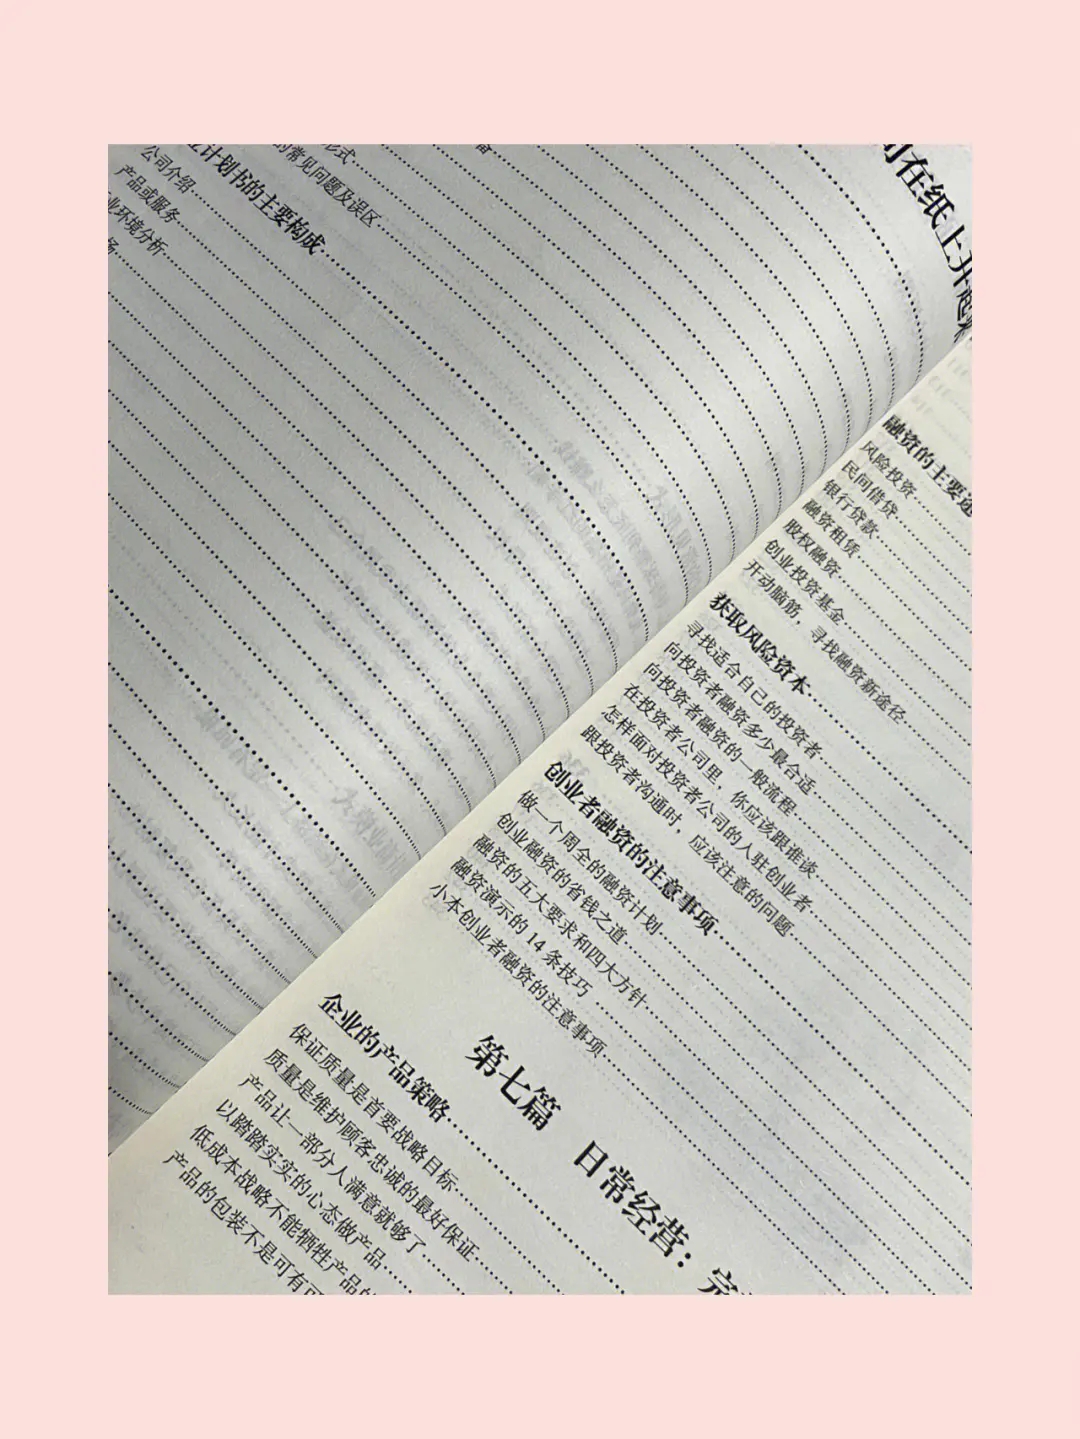 形式
的常见问题及误区
业计划书的主要构成
公司介绍
产品或服务
业环境分析
场
备
司在纸上开起
融资的主要途
风险投资
民间借贷
银行贷款
融资租赁
股权融资
创业投资基金
开动脑筋，寻找融资新途径
获取风险资本
寻找适合自己的投资者
向投资者融资多少最合适
向投资者融资的一般流程
在投资者公司里，你应该跟谁谈
怎样面对投资者公司的人驻创业者
跟投资者沟通时，应该注意的问题
创业者融资的注意事项
做一个周全的融资计划
创业融资的省钱之道
融资的五大要求和四大方针
融资演示的14条技巧
小本创业者融资的注意事项
第七篇 日常经营：完
企业的产品策略
保证质量是首要战略目标
质量是维护顾客忠诚的最好保证
产品让一部分人满意就够了
以踏踏实实的心态做产品
低成本战略不能牺牲产品的
产品的包装不是可有可